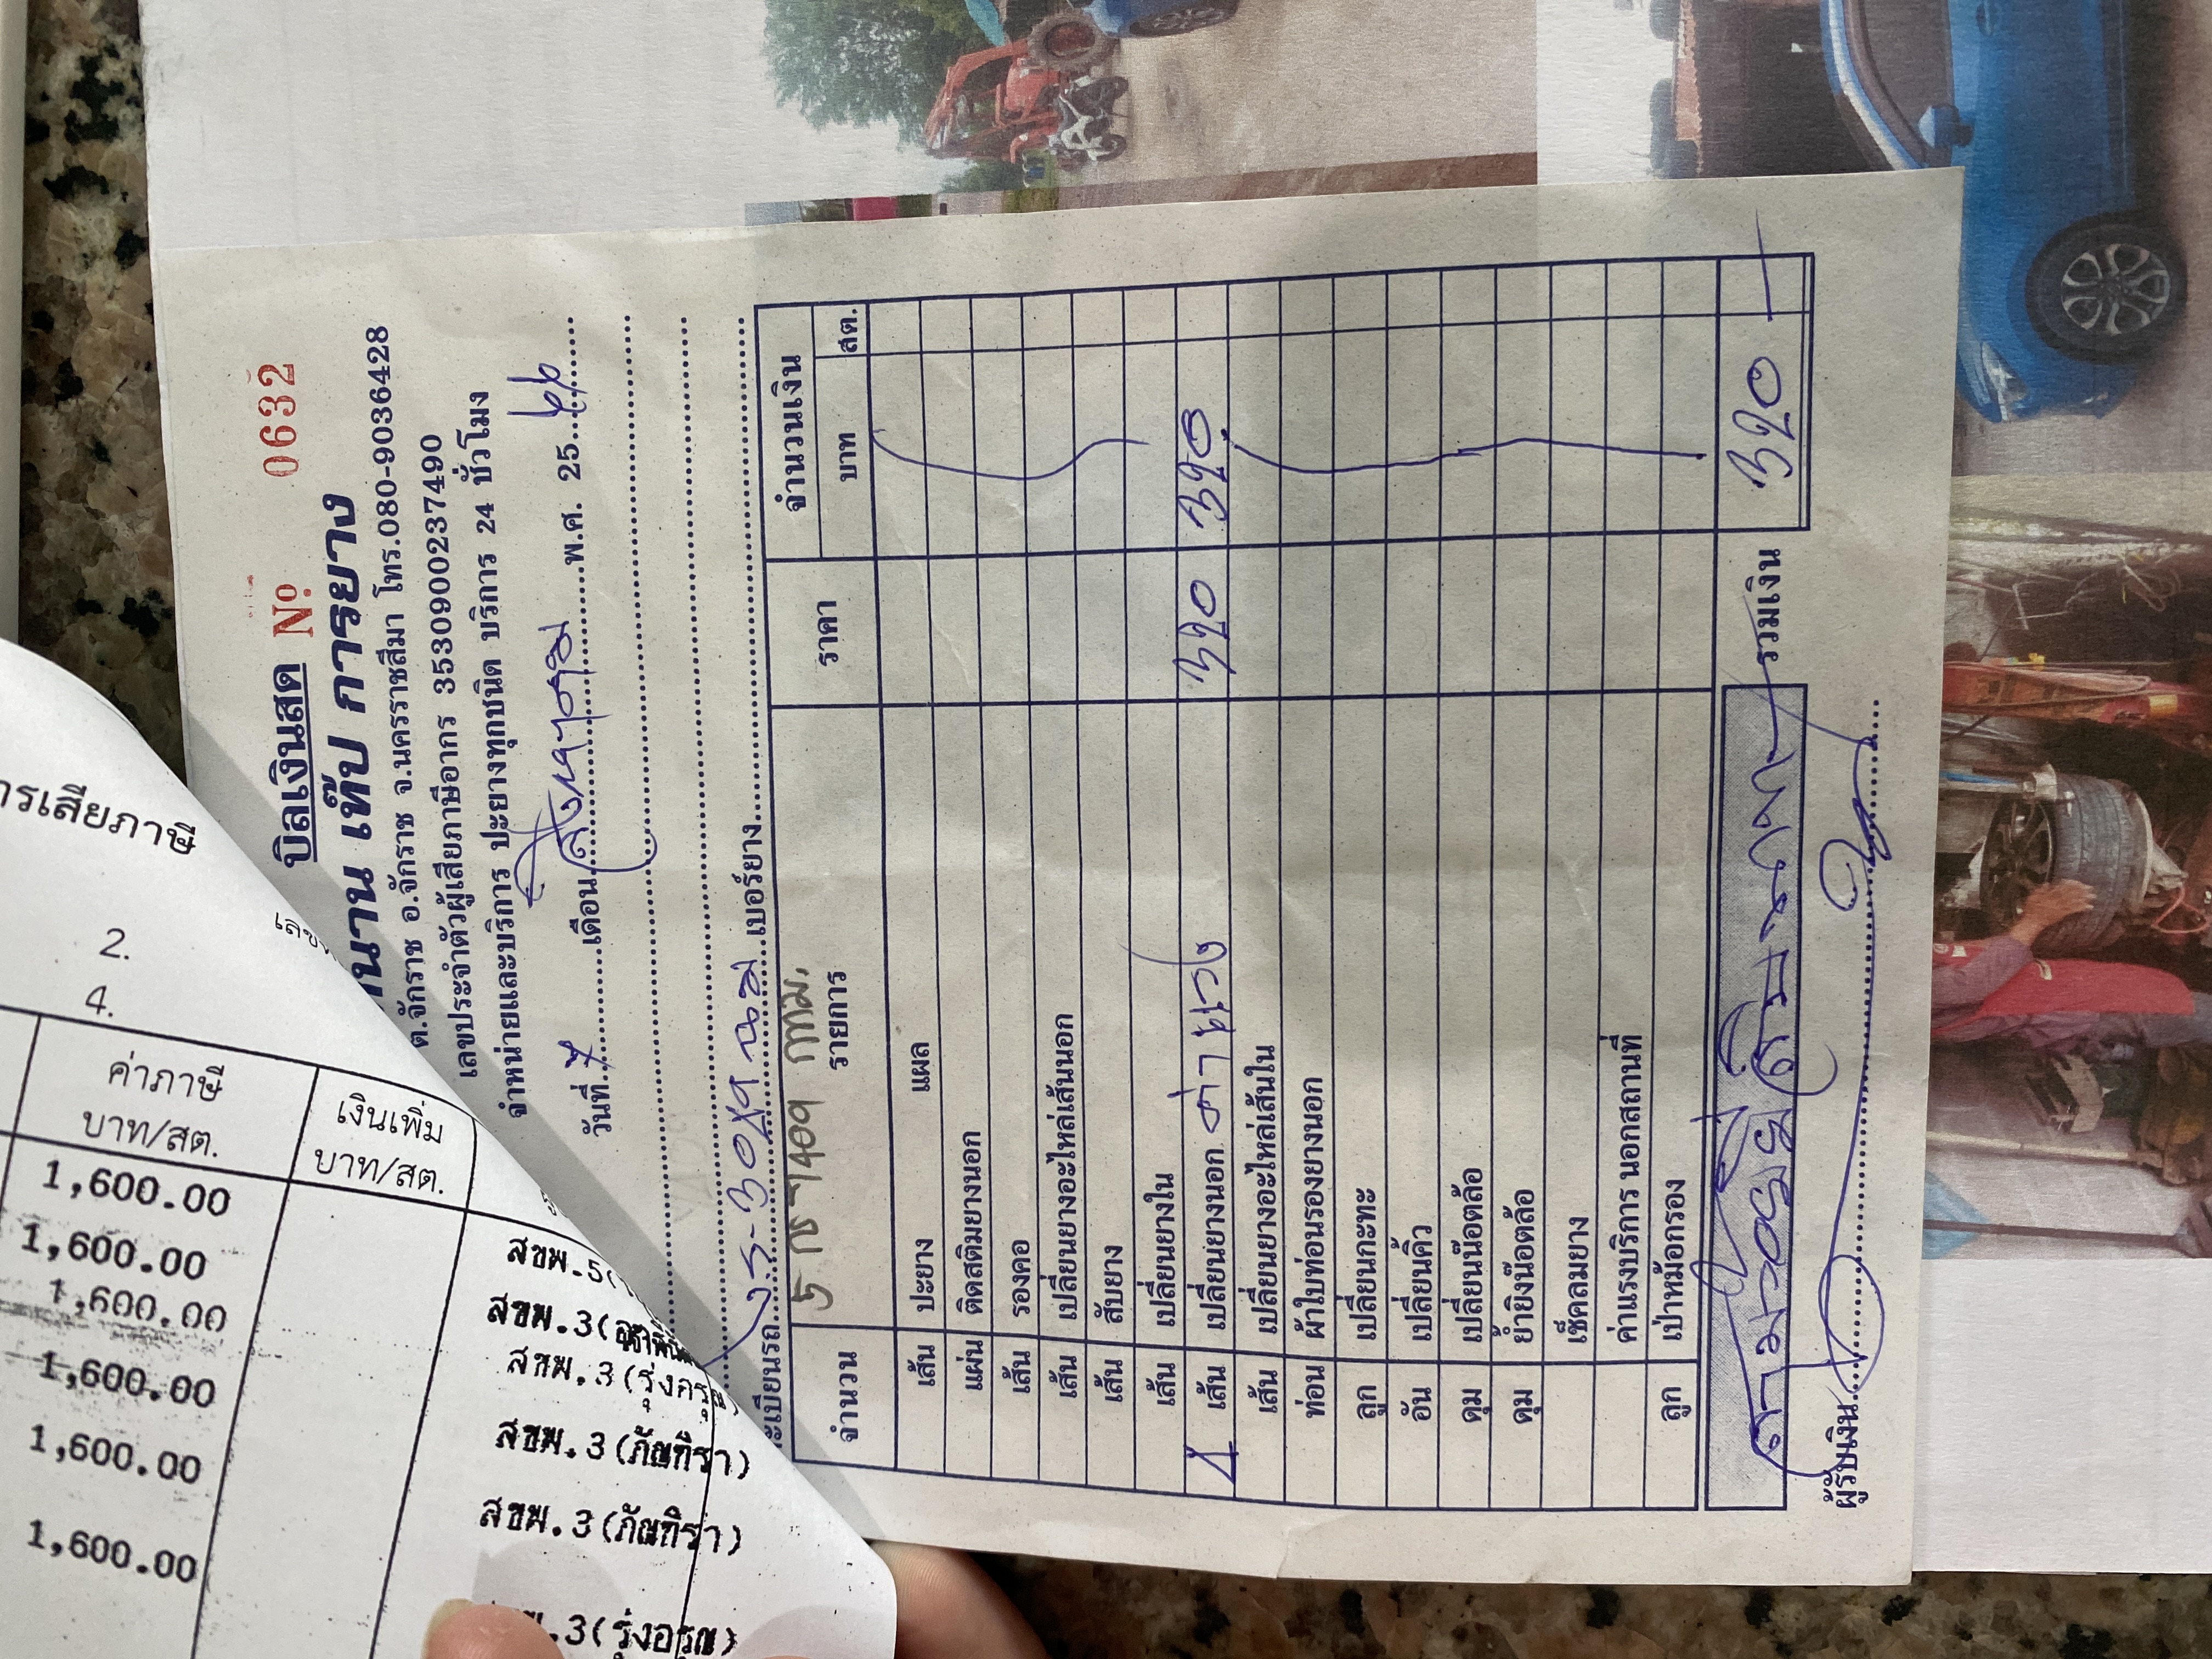 บิลเงินสด Nº 0632
เท๊ป การยาง
ต.จักราช อ.จักราช จ.นครราชสีมา โทร.080-9036428
เลขประจำตัวผู้เสียภาษีอากร 3530900237490
จำหน่ายและบริการ ปะยางทุกชนิด บริการ 24 ชั่วโมง
วันที่ 7 เดือน สิงหาคม พ.ศ. 25 66
ทะเบียนรถ เบอร์ยาง
จำนวน รายการ ราคา จำนวนเงิน
บาท สต.
เส้น ปะยาง แผล
แผ่น ติดสติมยางนอก
เส้น รองคอ
เส้น เปลี่ยนยางอะไหล่เส้นนอก
เส้น สับยาง
เส้น เปลี่ยนยางใน
1 เส้น เปลี่ยนยางนอก 320 320
เส้น เปลี่ยนยางอะไหล่เส้นใน
ท่อน ผ้าใบท่อนรองยางนอก
ลูก เปลี่ยนกะทะ
อัน เปลี่ยนคิ้ว
ดุม เปลี่ยนน๊อตล้อ
ดุม ย้ำยิงน๊อตล้อ
เช็คลมยาง
ค่าแรงบริการ นอกสถานที่
ลูก เป่าหม้อกรอง
สามร้อยยี่สิบบาท รวมเงิน 320
ผู้รับเงิน
ารเสียภาษี
2.
4.
ค่าภาษี
บาท/สต.
เงินเพิ่ม
บาท/สต.
1,600.00 สขพ.5(
1,600.00 สขพ.3(
1,600.00 สขพ.3(
1,600.00 สขพ.3(ภัณฑิรา)
1,600.00 สขพ.3(ภัณฑิรา)
1,600.00 .3(รุ่งอรุณ)